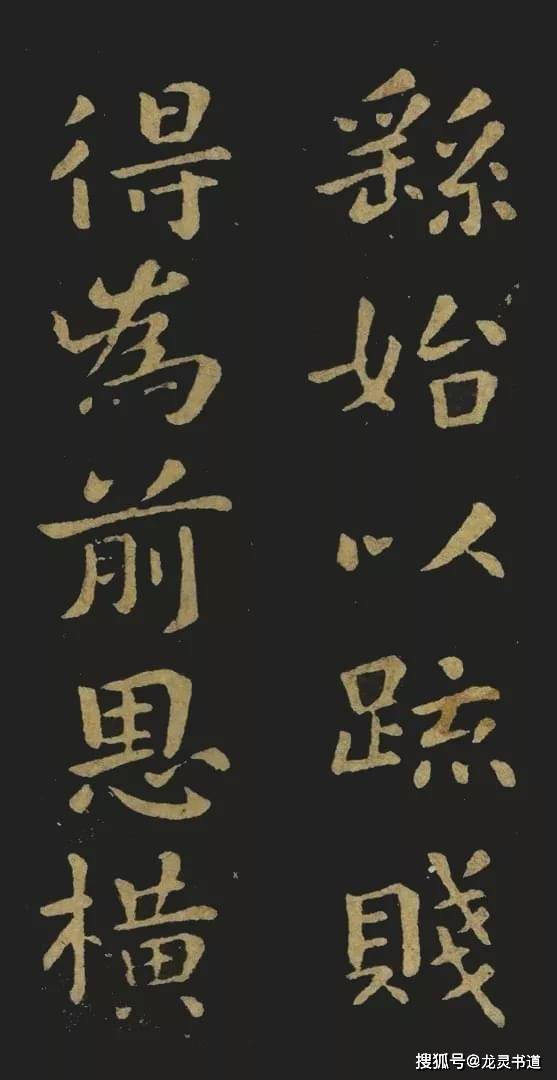 繇始以疏賤
得為前恩橫
搜狐号@龙灵书道